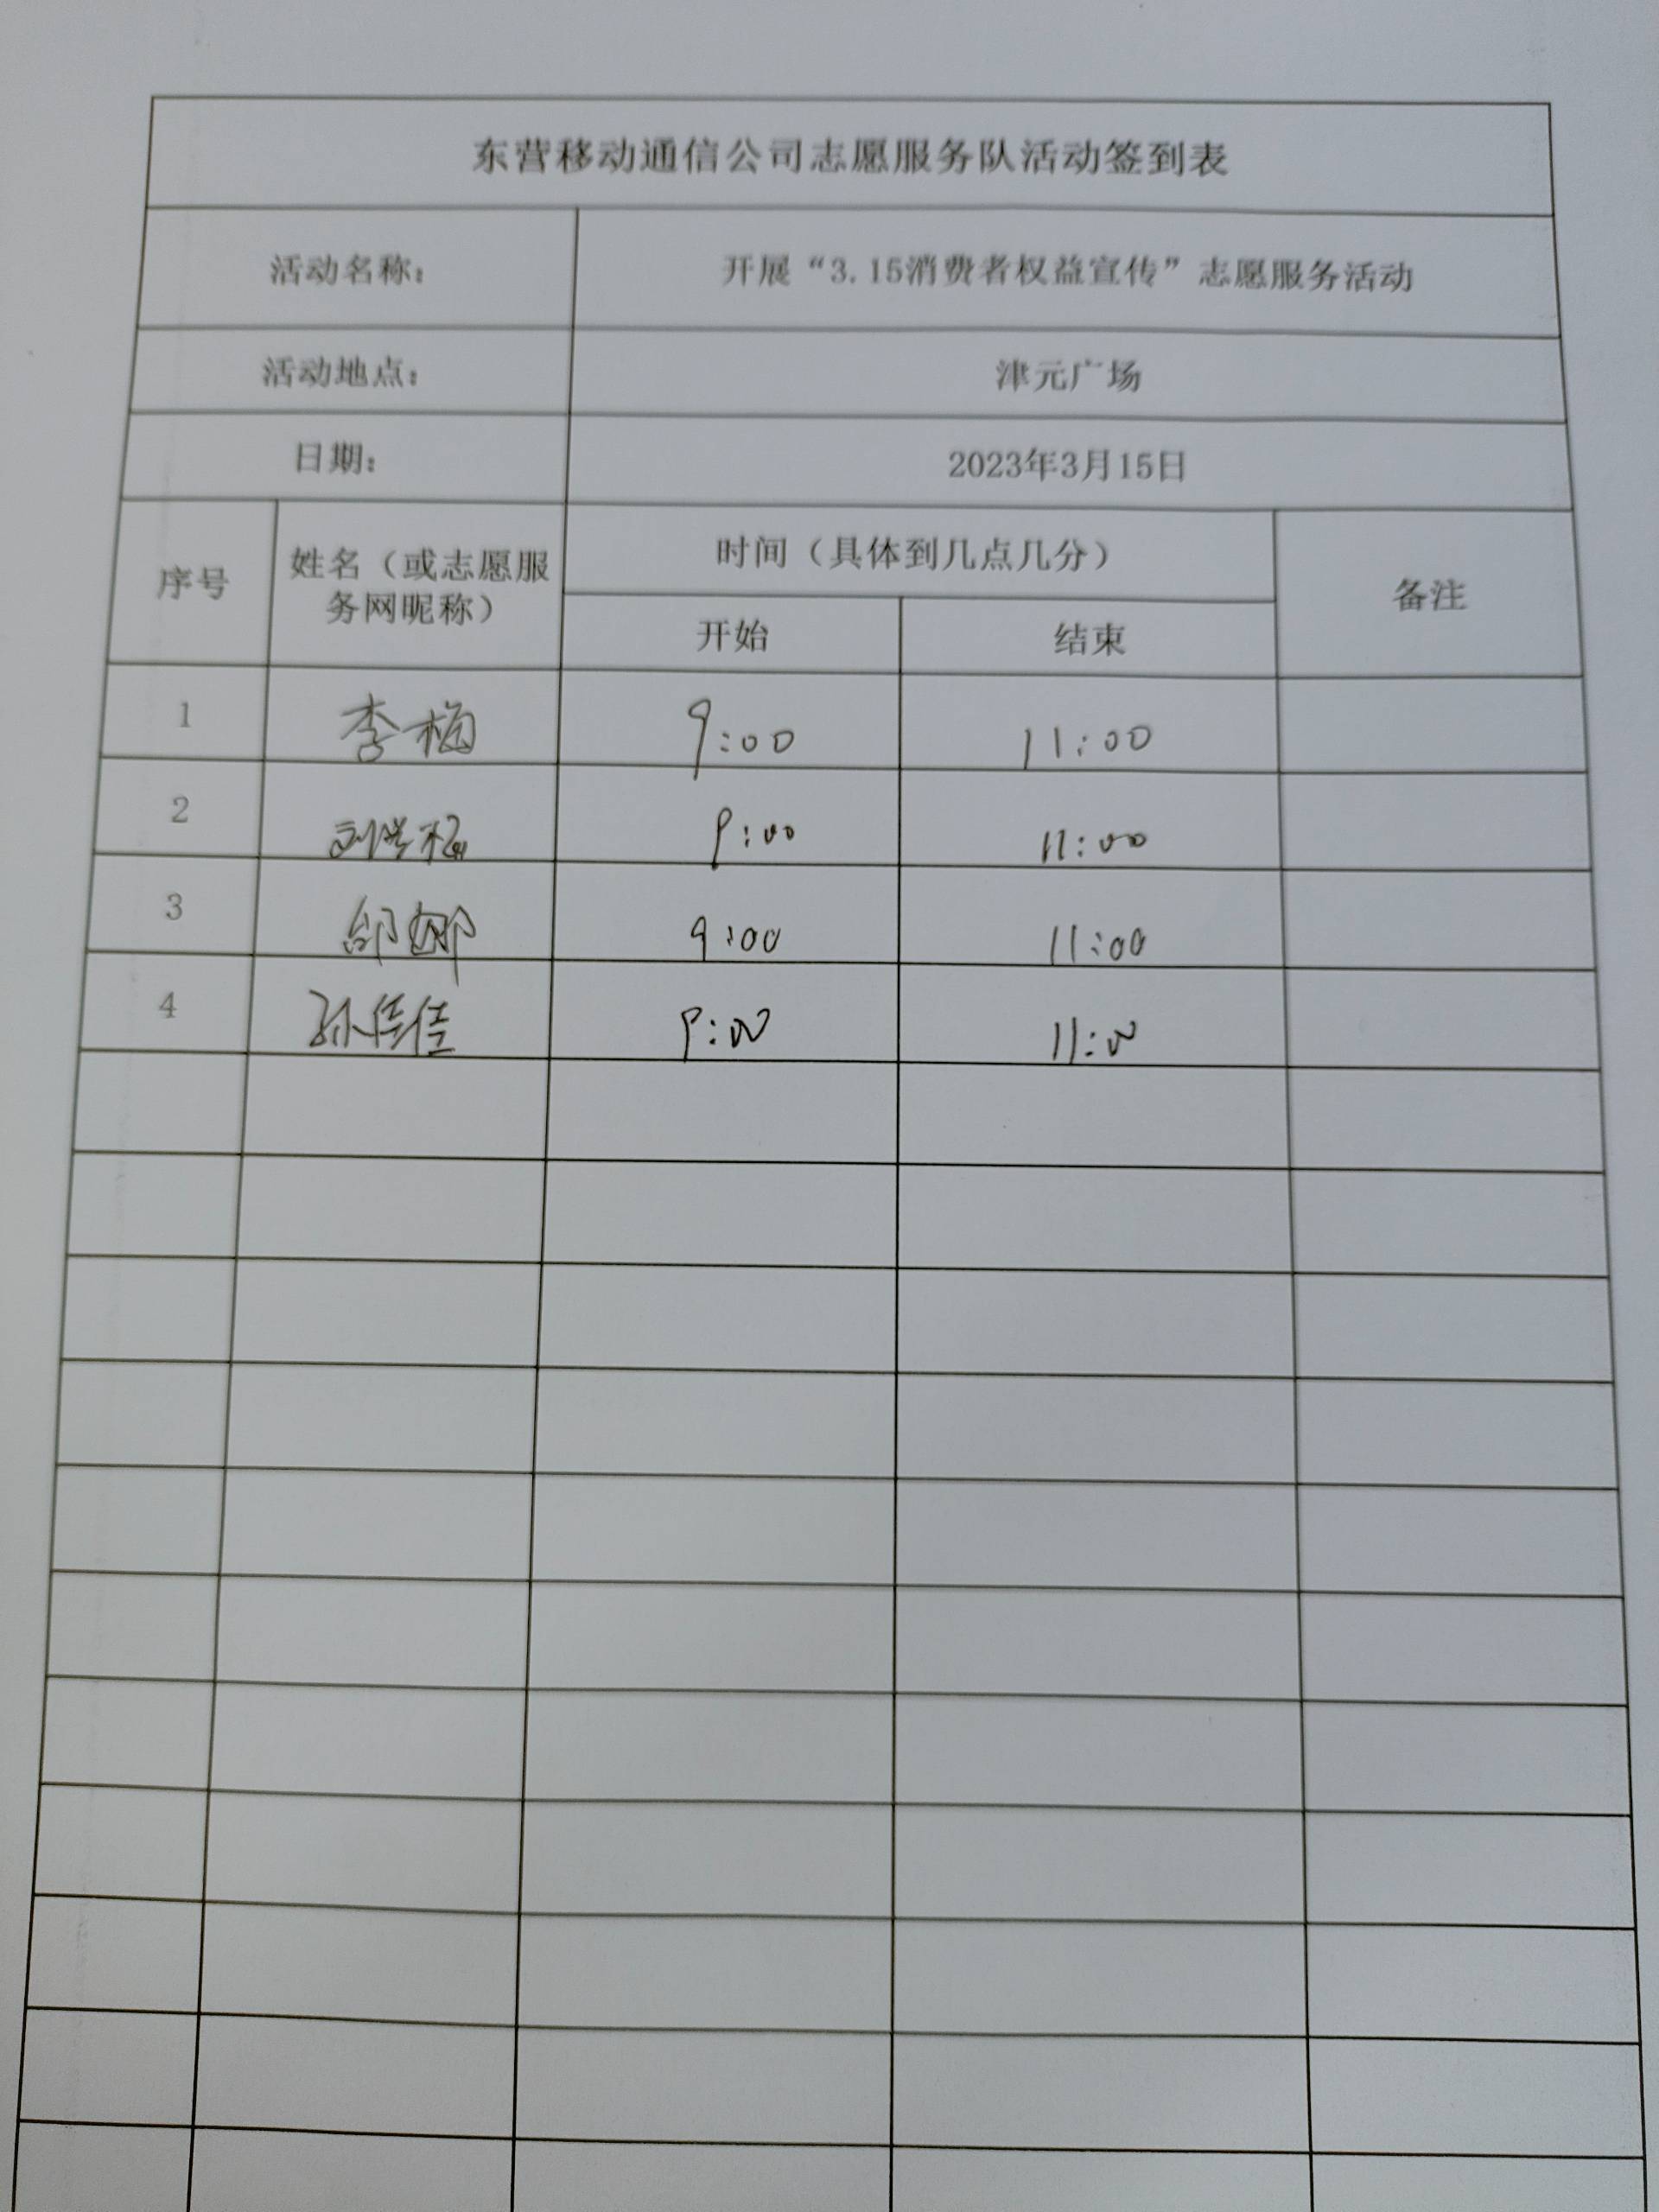 东营移动通信公司志愿服务队活动签到表
活动名称： 开展“3.15消费者权益宣传”志愿服务活动
活动地点： 津元广场
日期： 2023年3月15日
序号 姓名（或志愿服务网昵称） 时间（具体到几点几分） 备注
开始 结束
1 李梅 9:00 11:00
2 9:00 11:00
3 邰娜 9:00 11:00
4 孙佳佳 9:00 11:00